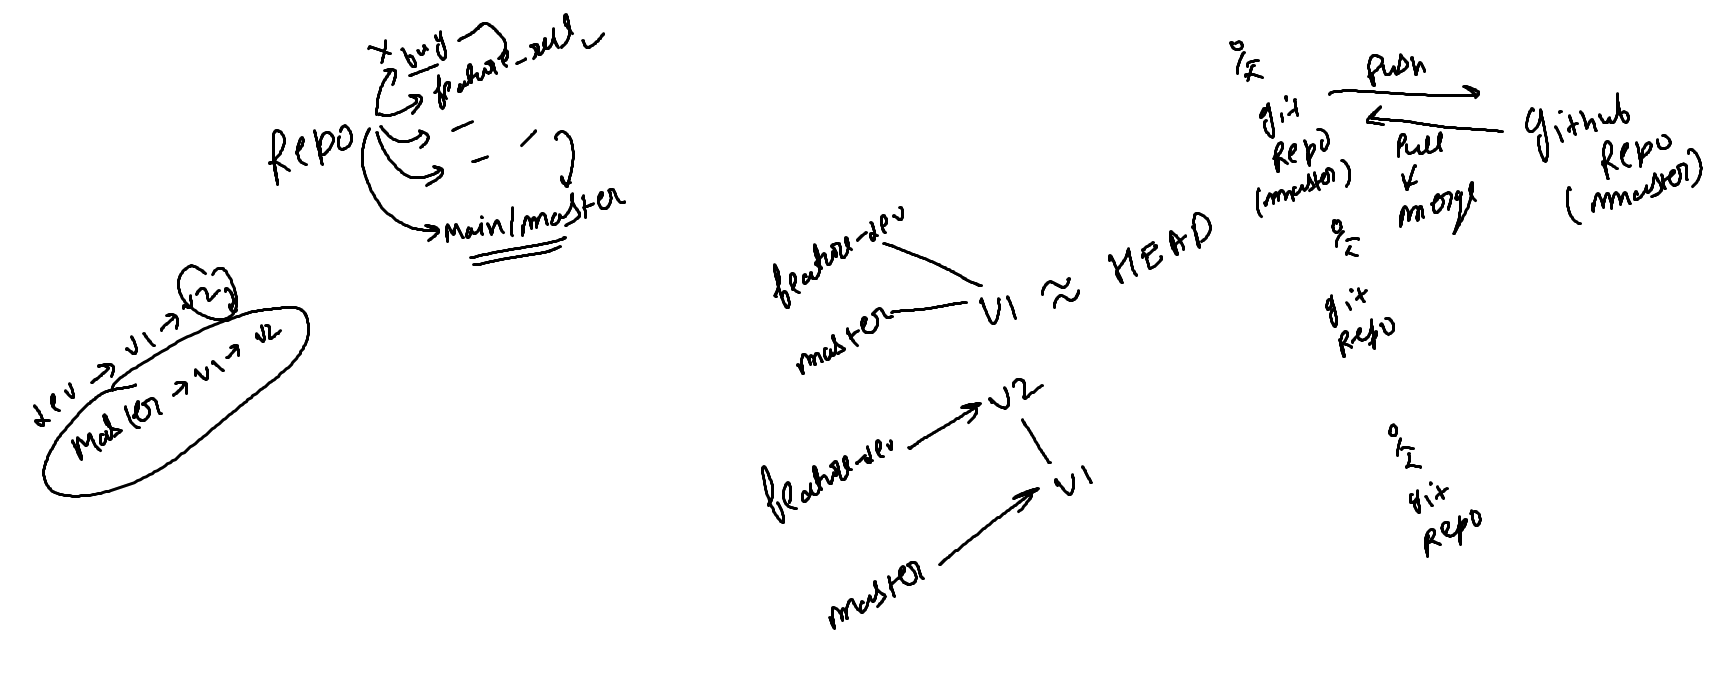 x buy
feature_sell
Repo
main/master
dev → v1 → v2
Master → v1 → v2
feature-dev
master
v1 ≈ HEAD
feature-dev → v2
v1
master
git
Repo
(master)
push
pull
merge
github
Repo
(master)
git
Repo
git
Repo